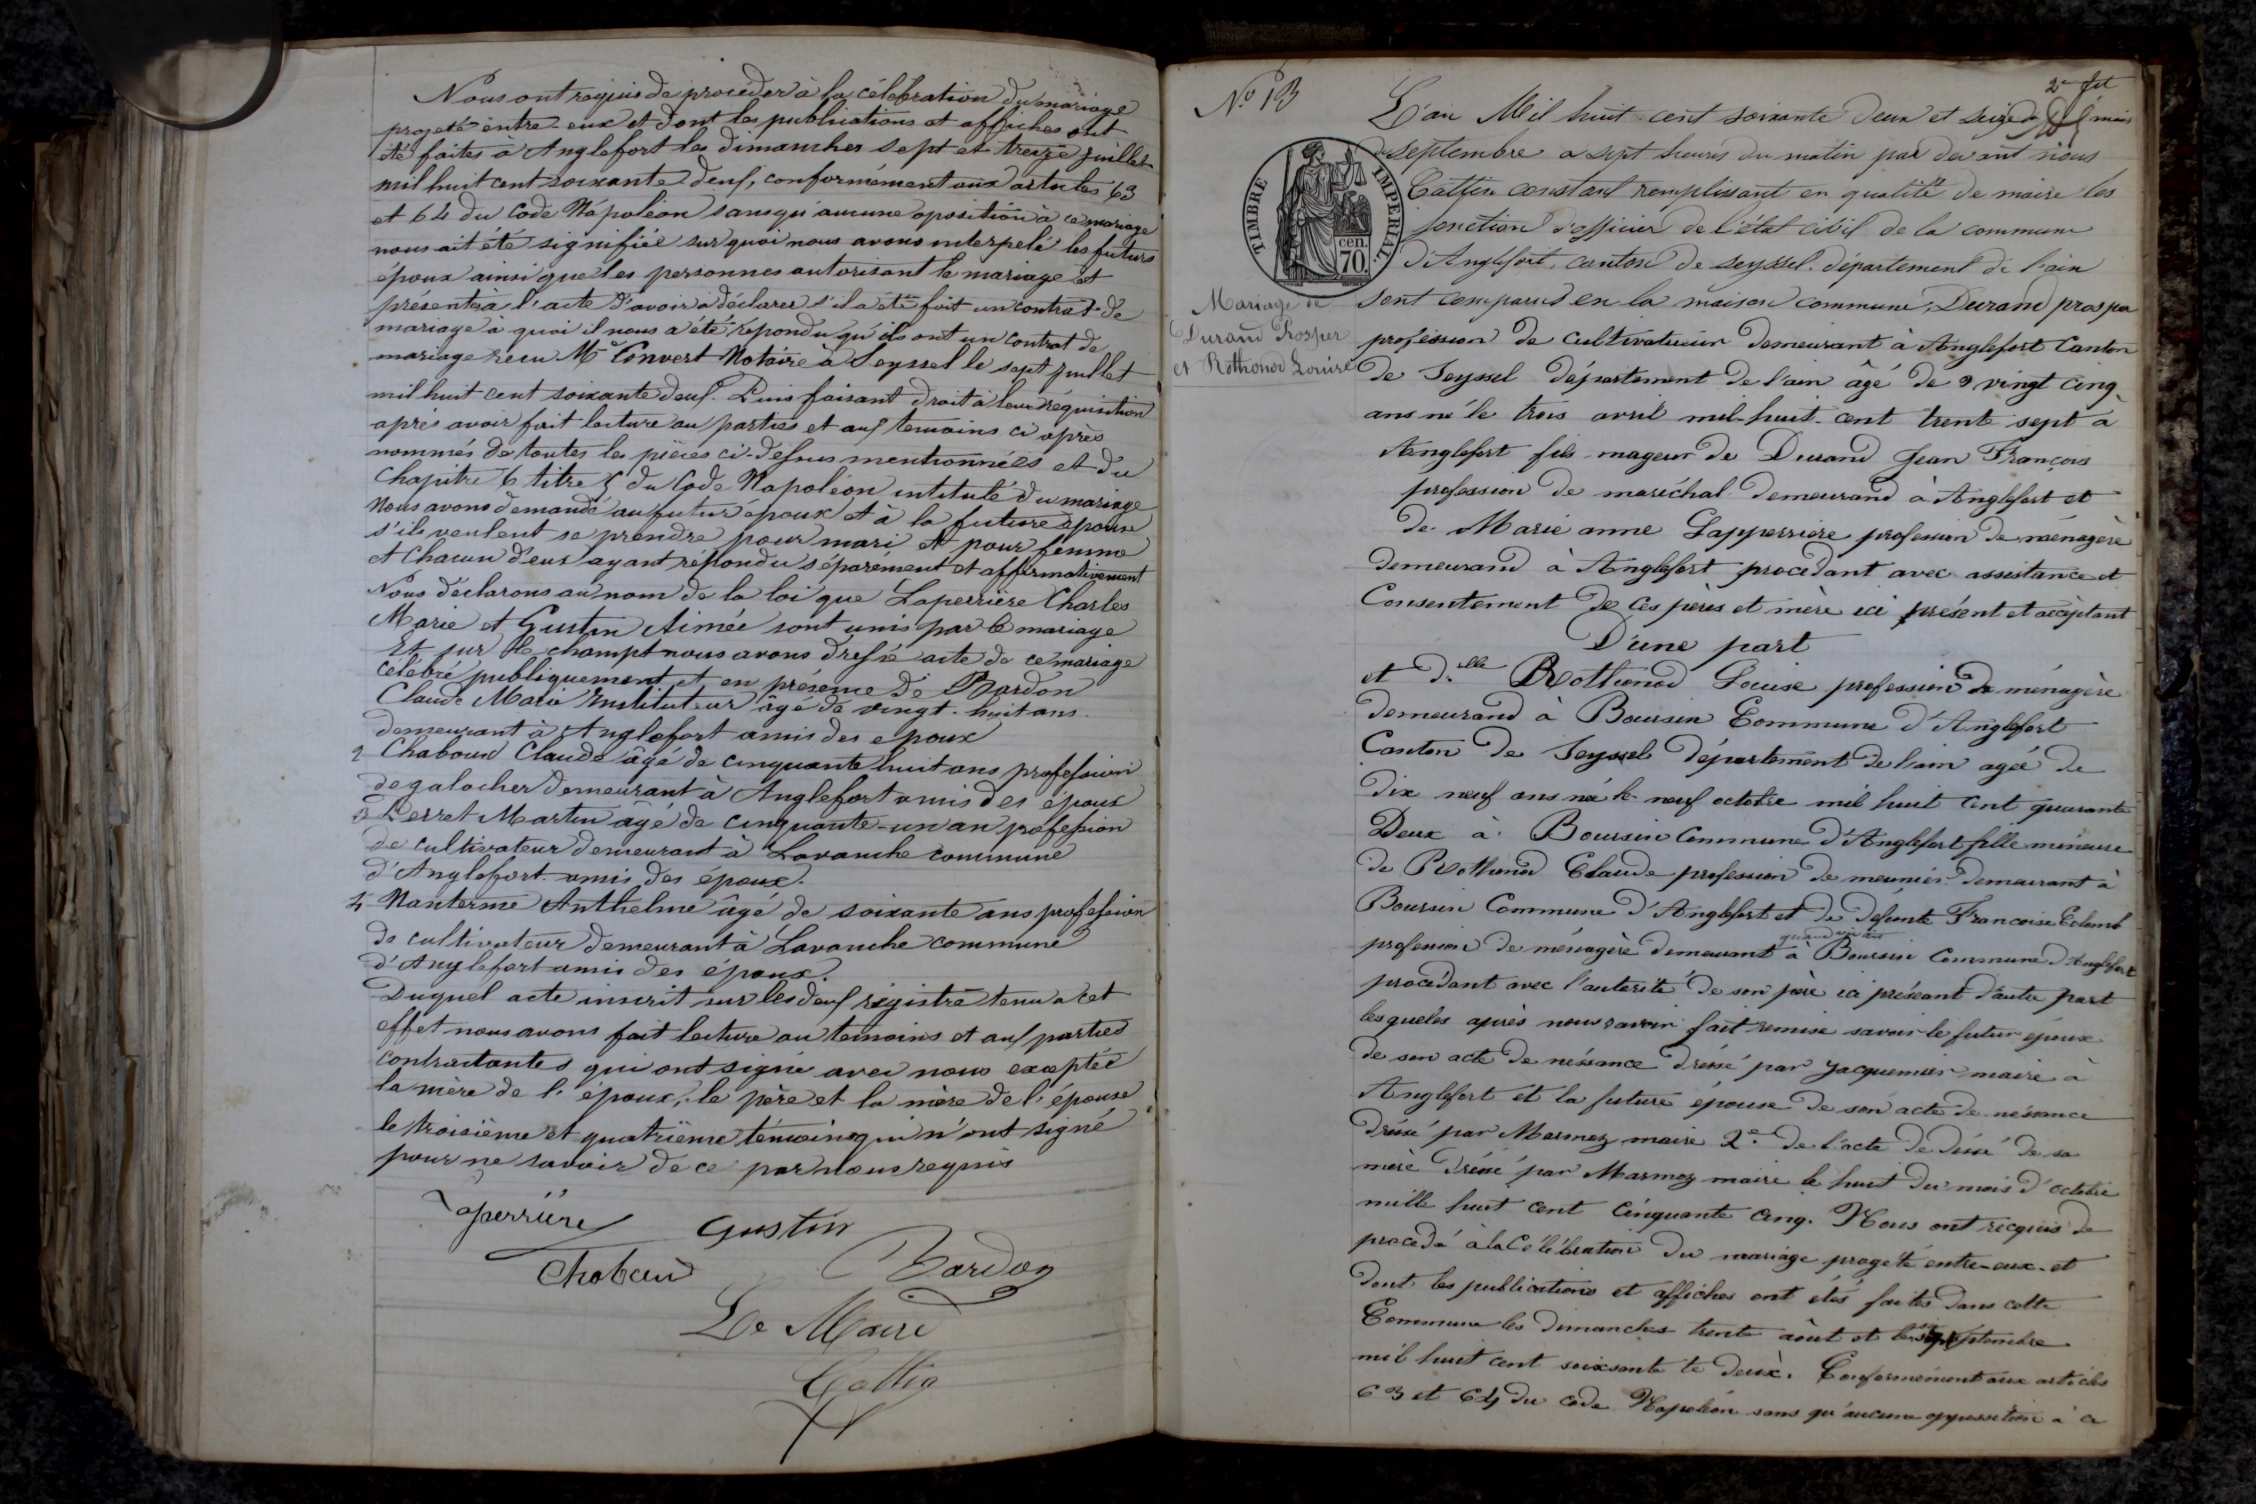 Nous ont requis de procéder à la célébration du mariage
projeté entre eux et dont les publications et affiches ont
été faites à Anglefort les dimanches sept et treize juillet
mil huit cent soixante deux, conformément aux articles 63
et 64 du Code Napoléon sans qu'aucune oposition à ce mariage
nous ait été signifiée sur quoi nous avons interpelé les futurs
époux ainsi que les personnes autorisant le mariage et
présente à l'acte d'avoir à déclarer s'il a été fait un contrat de
mariage à quoi il nous a été répondu qu'ils ont un contrat de
mariage recu Me Convert Notaire à Seyssel le sept juillet
mil huit cent soixante deux. Puis faisant droit à leur réquisition
après avoir fait lecture au parties et aux temoins ci après
nommés de toutes les pièces ci-dessus mentionnées et du
Chapitre 6 titre 5 du Code Napoléon intitulé du mariage
Nous avons demandé au futur époux et à la future épouse
s'ils veulent se prendre pour mari et pour femme
et chacun d'eux ayant répondu séparément et affirmativement
Nous déclarons au nom de la loi que Laperrière Charles
Marie et Gustin Aimée sont unis par le mariage
Et sur le champt nous avons dressé acte de ce mariage
célébré publiquement et en présence de Bardon
Claude Marie Instituteur âgé de vingt-huit ans
demeurant à Anglefort amis des epoux
2 Chaboud Claude âgé de cinquante huit ans profession
de galocher demeurant à Anglefort amis des époux
3 Perret Martin âgé de cinquante-un an profession
de cultivateur demeurant à Lavanche commune
d'Anglefort amis des époux.
4 Nanterme Anthelme âgé de soixante ans profession
de cultivateur demeurant à Lavanche commune
d'Anglefort amis des époux.
Duquel acte inscrit sur les deux registre tenu a cet
effet nous avons fait lecture au temoins et aux parties
contractantes qui ont signé avec nous exceptée
la mère de l'époux, le père et la mère de l'épouse
le troisième et quatrième témoins qui n'ont signé
pour ne savoir de ce par nous requis
Laperrière Gustin
Chaboud Bardon
Le Maire
Cattin
2e fet
No 13
TIMBRE IMPERIAL
cen.
70
Mariage de
Durand Prosper
et Rothonod Louise
L'an Mil huit cent soixante deux et seize du mois
de septembre a sept heures du matin par devant nous
Cattin constant remplissant en qualité de maire les
fonction d'officier de l'état civil de la commune
d'Anglefort, canton de seyssel. département de l'ain
sont comparus en la maison commune, Durand prosper
profession de cultivateur demeurant à Anglefort Canton
de Seyssel département de l'ain âgé de vingt cinq
ans né le trois avril mil-huit-cent trente sept à
Anglefort fils mageur de Durand Jean François
profession de maréchal demeurand à Anglefort et
de Marie anne Lapperriere profession de ménagère
demeurand à Anglefort procédant avec assistance et
Consentement de ces pères et mère ici présent et acceptant
D'une part
et d.lle Rothonod Louise profession de ménagère
demeurand à Boursin Commune d'Anglefort
Canton de Seyssel département de l'ain agée de
dix neuf ans née le neuf octobre mil huit cent quarante
Deux à Boursin Commune d'Anglefort fille mineure
de Rothonod Claude profession de meunier demeurant à
Boursin Commune d'Anglefort et de defunte Françoise Colomb
profession de ménagère demeurant à Boursin Commune d'Anglefort
procédant avec l'autorité de son père ici présent d'autre part
lesqueles après nous avoir fait remise savoir le futur époux
de son acte de néssance dressé par Jacquemier maire à
Anglefort et la future épouse de son acte de néssance
dréssé par Marmoz maire 2e de l'acte de décé de sa
mère dréssé par Marmoz maire le huit du mois d'octobre
mille huit cent cinquante cinq. Nous ont recquis de
procedé à la Célébration du mariage progété entre-eux et
dont les publications et affiches ont étés faites dans cette
Commune les dimanches trente août et septembre
mil huit cent soixsante te deux. Conformément aux articles
63 et 64 du code Napoléon sans qu'aucune oppossition à ce